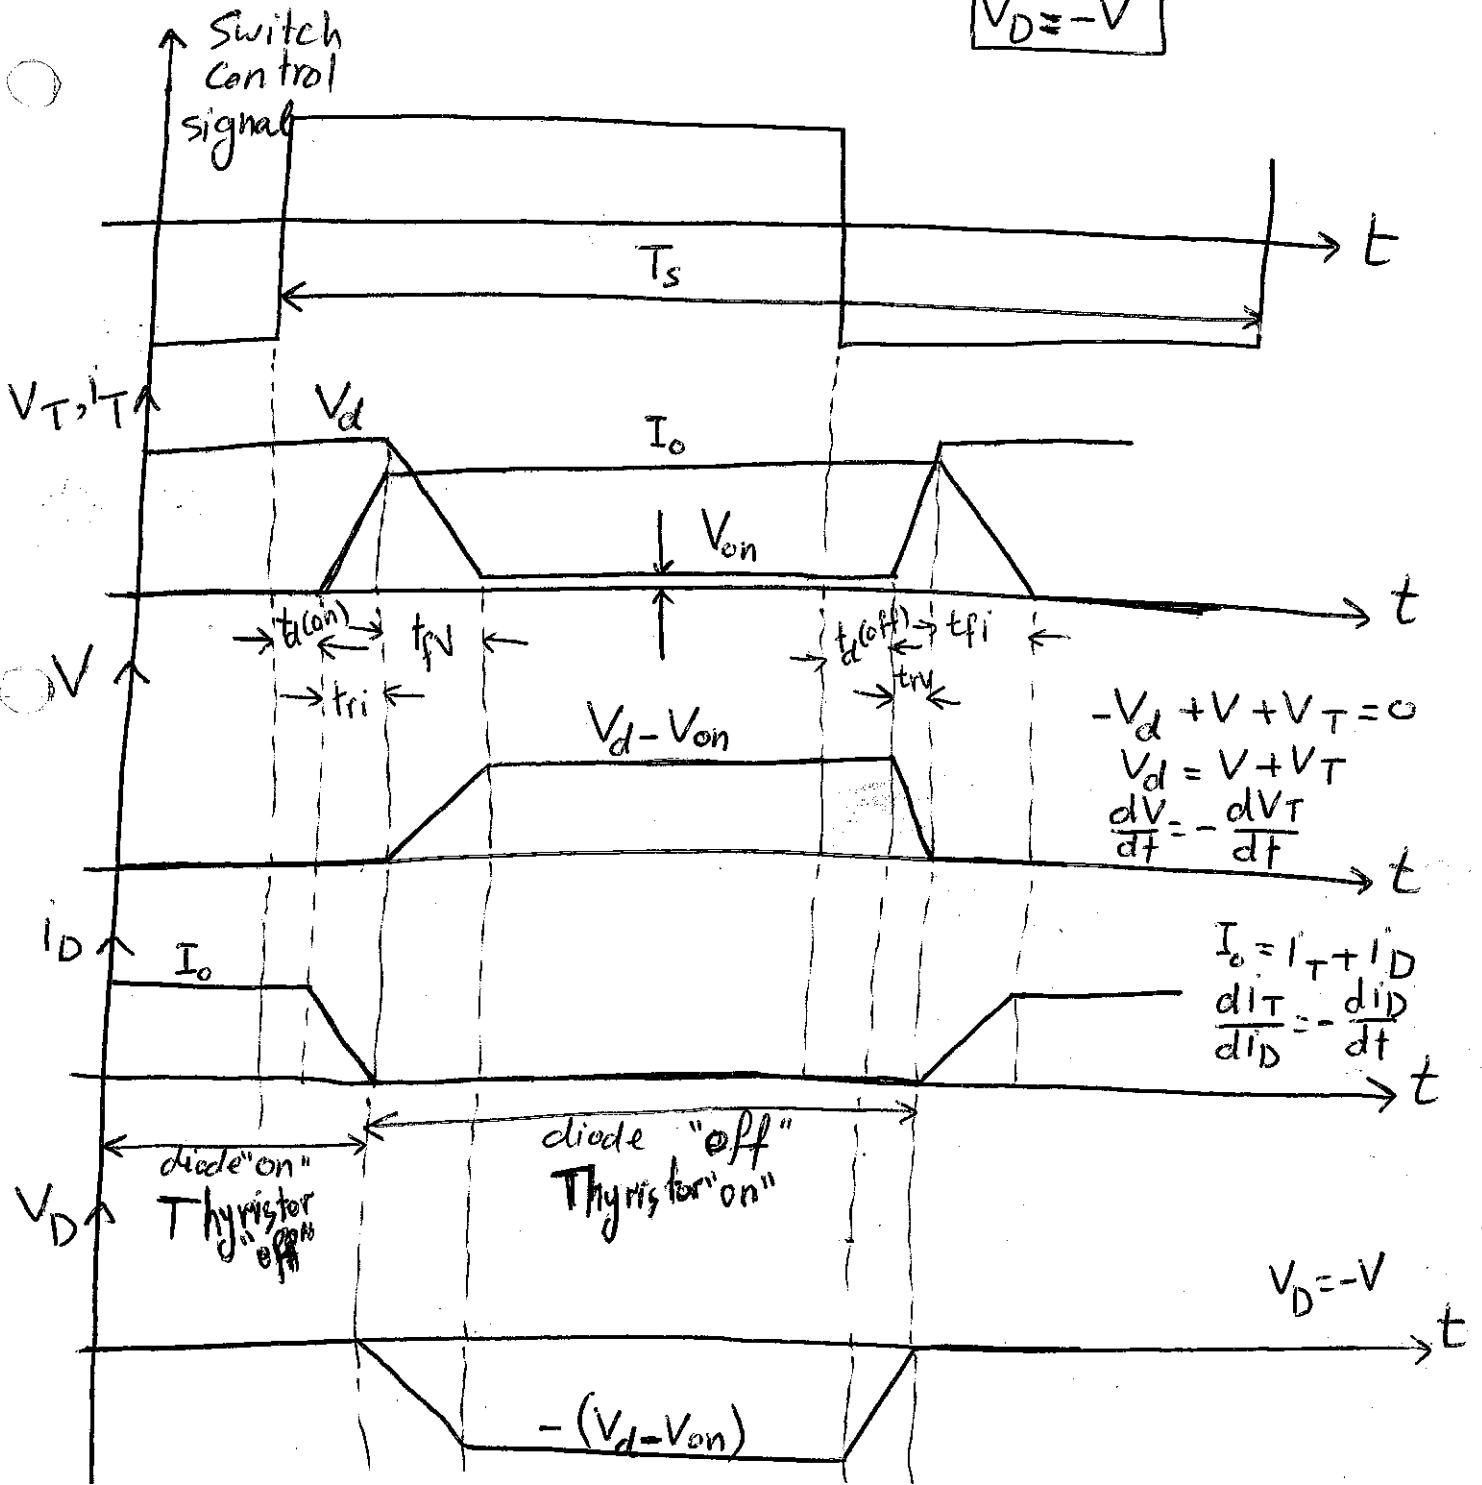 V_D = -V
Switch
Control
signal
t
T_s
V_T, i_T
V_d
I_o
V_on
t
t_d(on)
t_fv
t_d(off)
t_fi
V
t_ri
t_rv
-V_d + V + V_T = 0
V_d - V_on
V_d = V + V_T
dV/dt = - dV_T/dt
t
i_D
I_o
I_o = i_T + i_D
di_T/di_D = - di_D/dt
t
diode "off"
Thyristor "on"
diode "on"
Thyristor
"off"
V_D
V_D = -V
t
- (V_d - V_on)